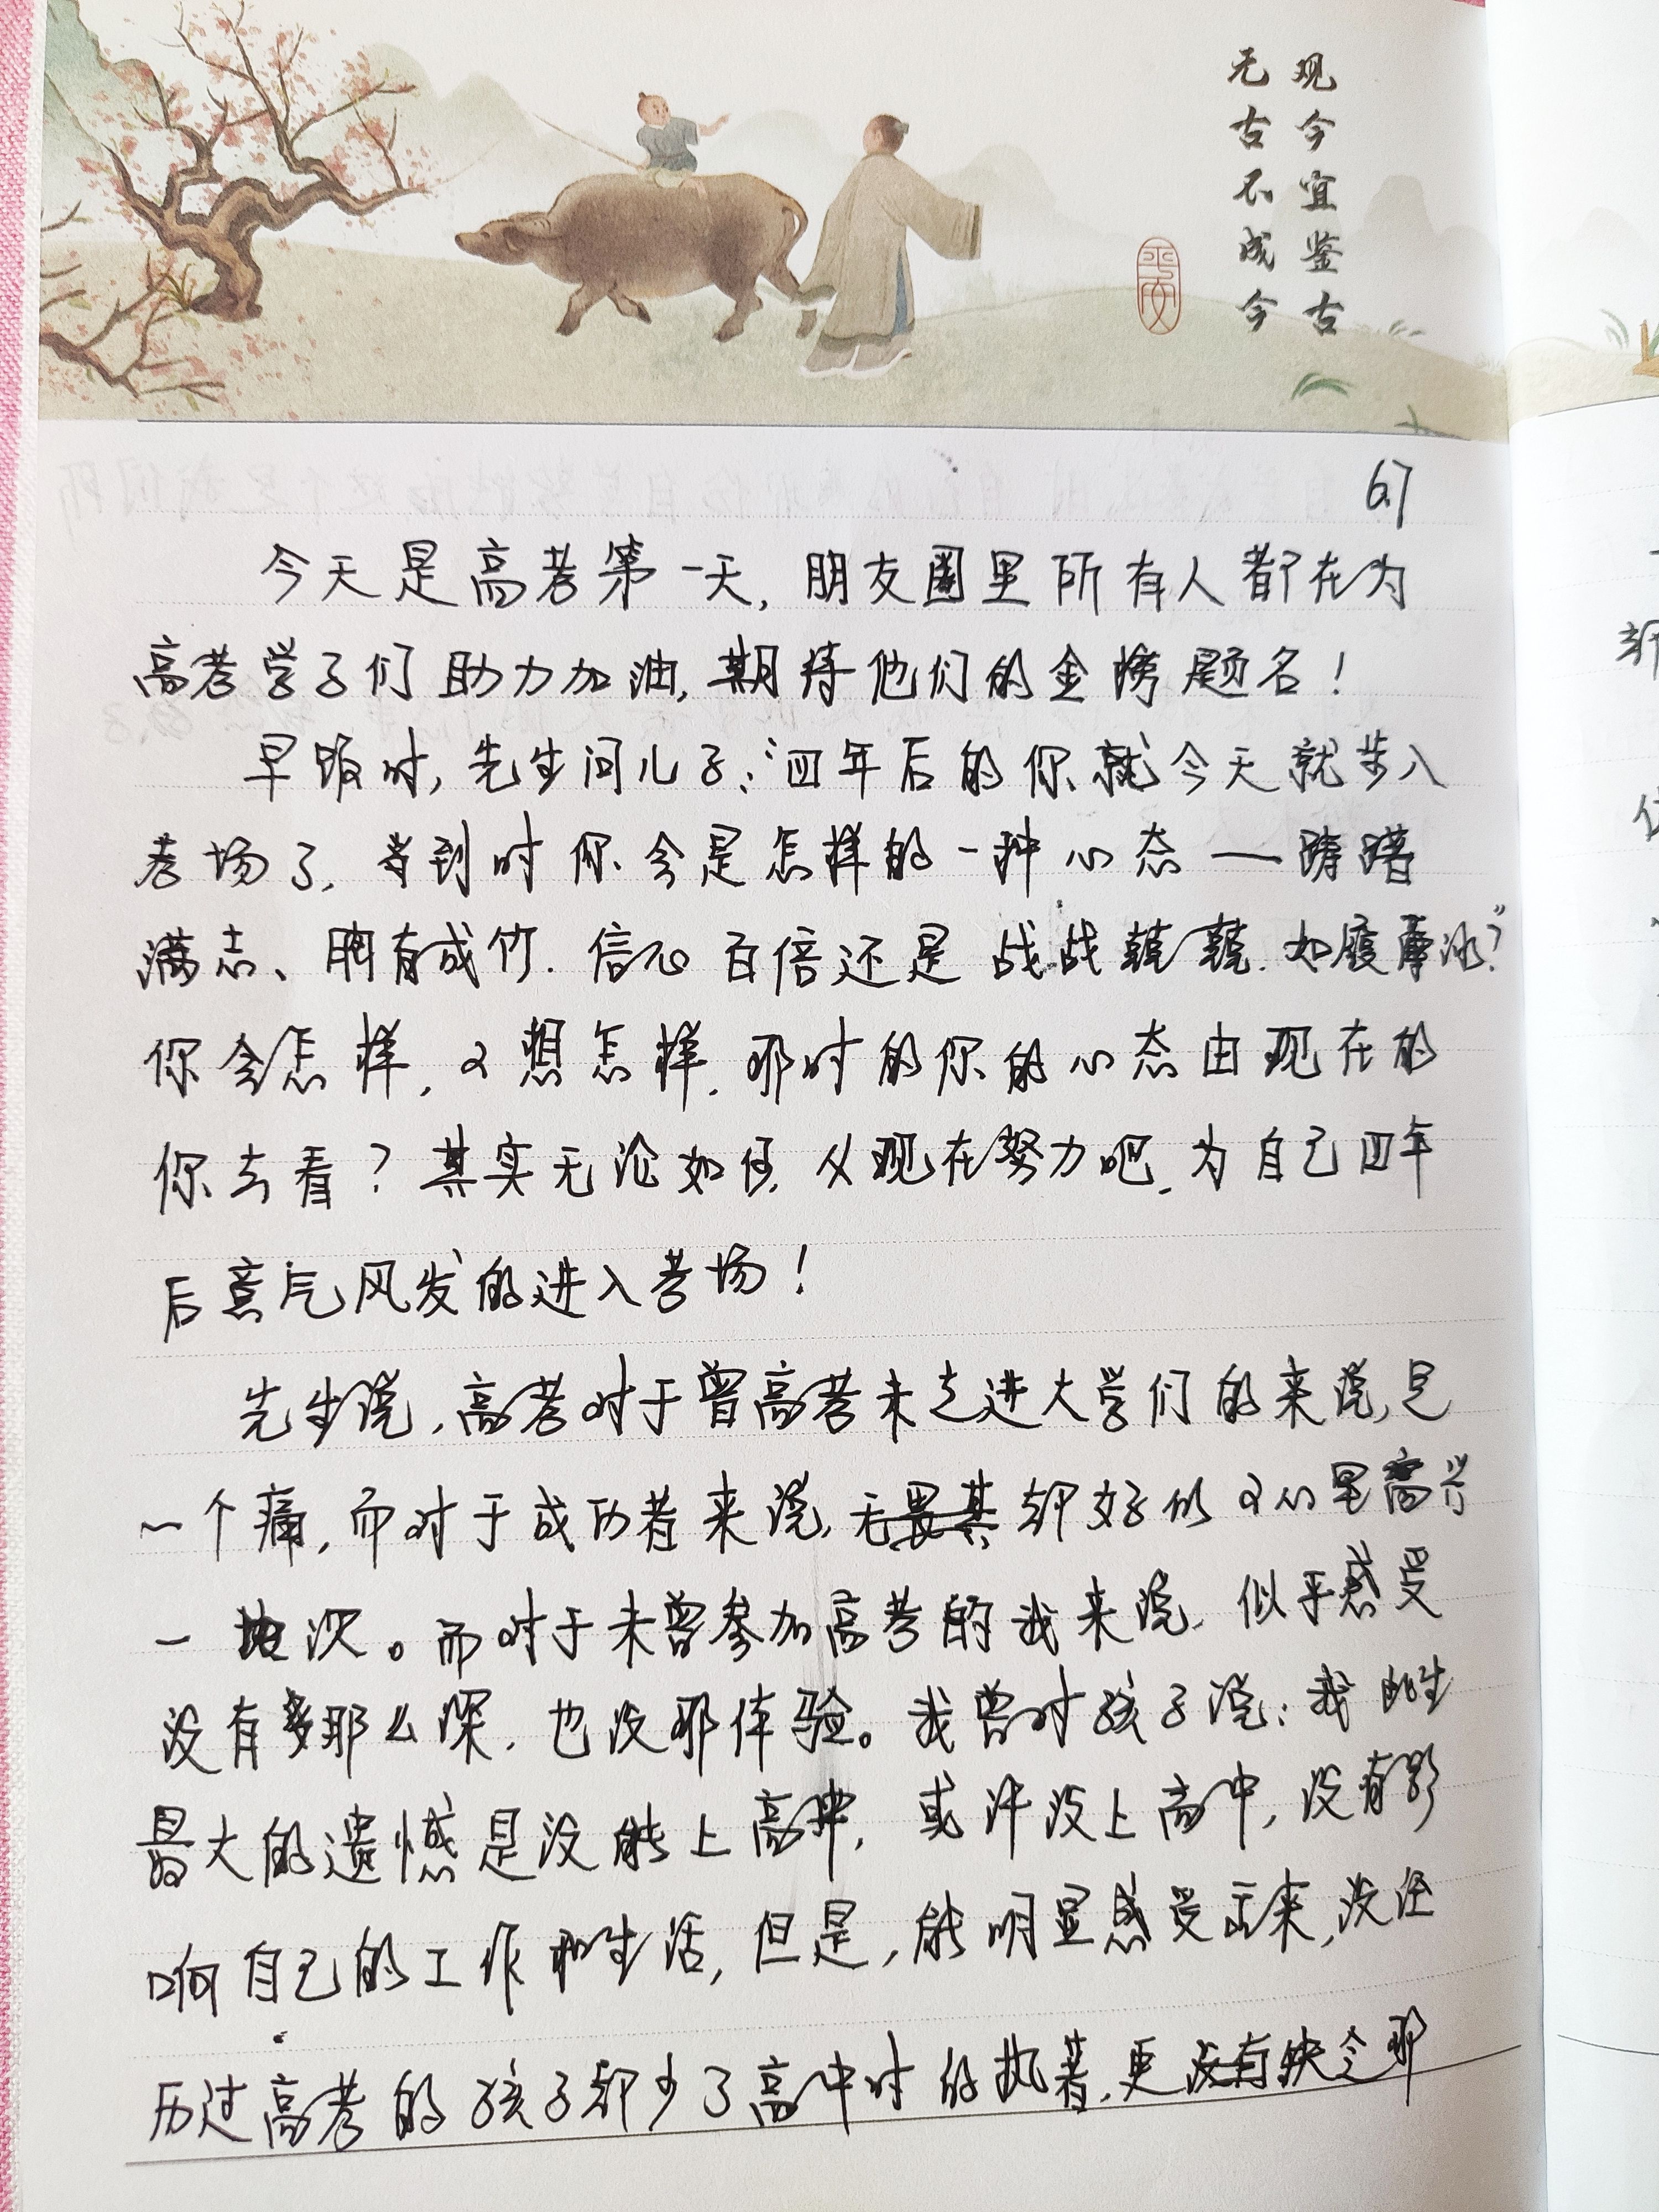 观今宜鉴古
无古不成今
平安
6.7
今天是高考第一天,朋友圈里所有人都在为
高考学子们助力加油,期待他们的金榜题名!
早饭时,先生问儿子:“四年后的你就今天就步入
考场了,当到时你会是怎样的一种心态——踌躇
满志、胸有成竹、信心百倍还是战战兢兢、如履薄冰?”
你会怎样,又想怎样,那时的你的心态由现在的
你去看?其实无论如何,从现在努力吧,为自己四年
后意气风发的进入考场!
先生说,高考对于曾高考未走进大学们的来说,是
一个痛,而对于成功者来说,无畏其却好似又心里高兴
一次。而对于未曾参加高考的我来说,似乎感受
没有多那么深,也没那体验。我曾对孩子说:我此生
最大的遗憾是没能上高中,或许没上高中,没有影
响自己的工作和生活,但是,能明显感受出来,没经
历过高考的孩子却少了高中时的执著,更没有缺今那